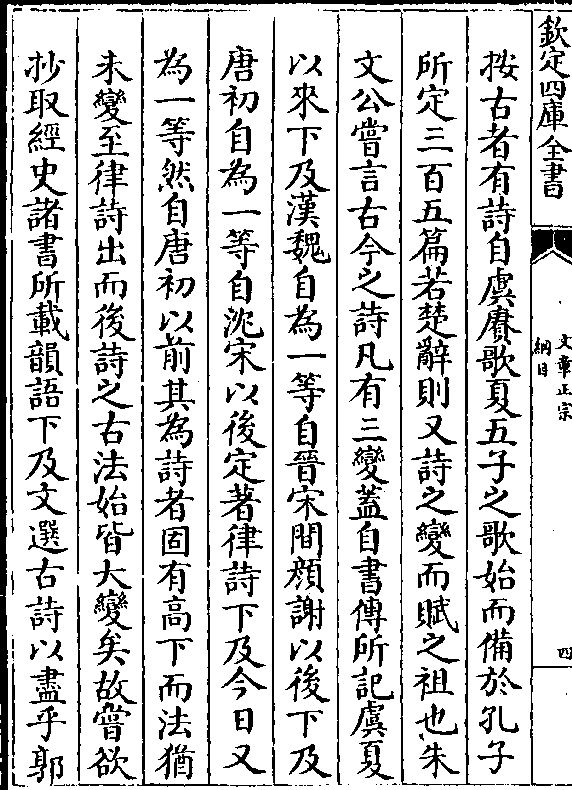 欽定四庫全書
文章正宗
綱目
四
按古者有詩自虞賡歌夏五子之歌始而備於孔子
所定三百五篇若楚辭則又詩之變而賦之祖也朱
文公嘗言古今之詩凡有三變蓋自書傳所記虞夏
以來下及漢魏自為一等自晉宋間顔謝以後下及
唐初自為一等自沈宋以後定著律詩下及今日又
為一等然自唐初以前其為詩者固有高下而法猶
未變至律詩出而後詩之古法始皆大變矣故嘗欲
抄取經史諸書所載韻語下及文選古詩以盡乎郭